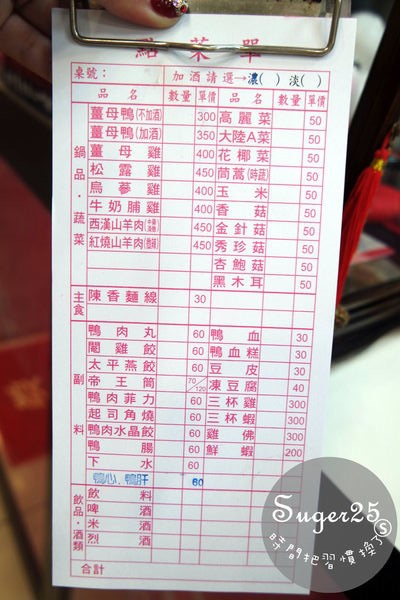 點菜單
桌號： 加酒請選→濃( ) 淡( )
品名 數量 單價 品名 數量 單價
鍋品・蔬菜
薑母鴨(不加酒) 300 高麗菜 50
薑母鴨(加酒) 350 大陸A菜 50
薑母雞 400 花椰菜 50
松露雞 450 茼蒿(時蔬) 50
烏蔘雞 400 玉米 50
牛奶脯雞 400 香菇 50
西漢山羊肉 450 金針菇 50
紅燒山羊肉 450 秀珍菇 50
杏鮑菇 50
黑木耳 50
主食 陳香麵線 30
副料
鴨肉丸 60 鴨血 30
閹雞餃 60 鴨血糕 30
太平燕餃 60 豆皮 30
帝王筒 70/120 凍豆腐 40
鴨肉菲力 60 三杯雞 300
起司角燒 60 三杯蝦 300
鴨肉水晶餃 60 雞佛 300
鴨腸 60 鮮蝦 200
下水 60
鴨心、鴨肝 60
飲品・酒類
飲料
啤酒
米酒
烈酒
合計
Suger25
時間把習慣換了
S